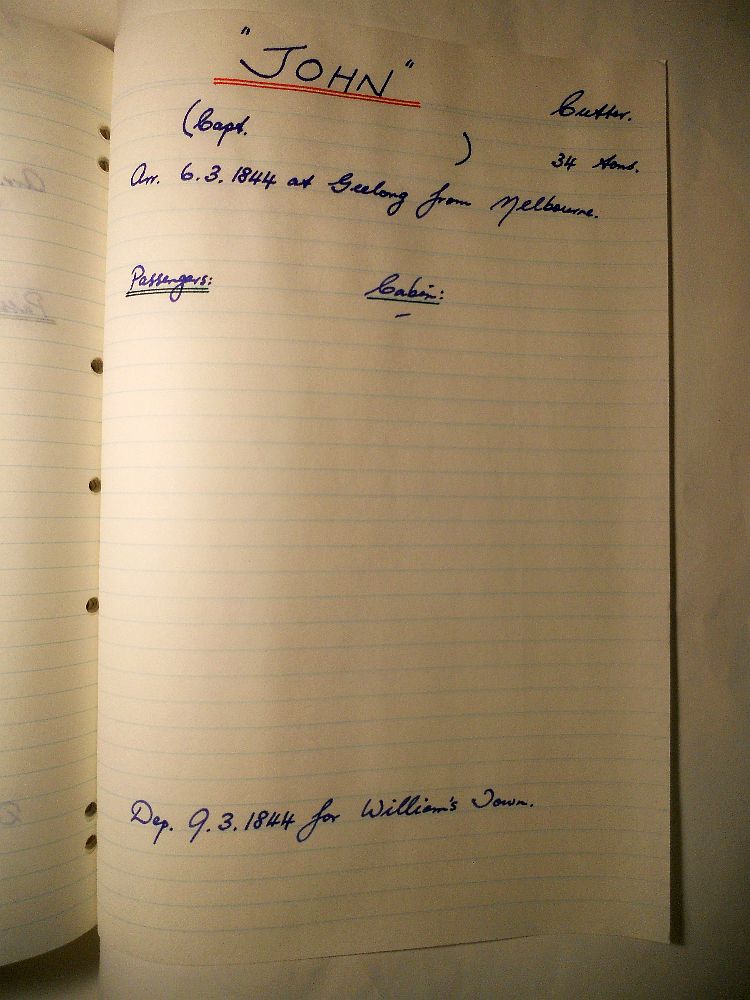 "JOHN"
Cutter.
(Capt. )
34 tons.
Arr. 6.3.1844 at Geelong from Melbourne.
Passengers: Cabin:
–
Dep. 9.3.1844 for William's Town.